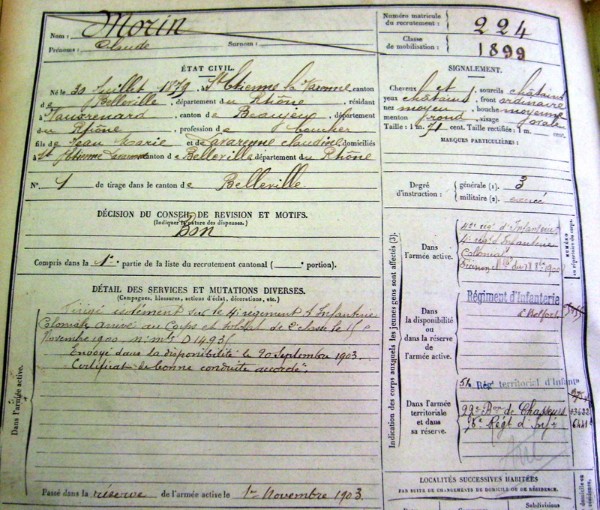 Nom : Morin
Prénoms : Claude Surnom :
Numéro matricule du recrutement : 224
Classe de mobilisation : 1899
ÉTAT CIVIL.
Né le 20 Juillet 1879, à St Etienne la Varenne canton
de Belleville, département du Rhône, résidant
à Vauxrenard canton de Beaujeu département
du Rhône, profession de
fils de Jean Marie et de Claudine domiciliés
à St Etienne canton de Belleville département du Rhône
N° 1 de tirage dans le canton de Belleville
DÉCISION DU CONSEIL DE REVISION ET MOTIFS.
(Indiquer la nature des dispenses.)
Bon
Compris dans la 1re partie de la liste du recrutement cantonal ( portion).
DÉTAIL DES SERVICES ET MUTATIONS DIVERSES.
(Campagnes, blessures, actions d'éclat, décorations, etc.)
Dirigé isolément sur le 4e régiment d'Infanterie
Coloniale, arrivé au Corps et soldat de 2e classe le
Novembre 1900. n° mle
Envoyé dans la disponibilité le 20 Septembre 1903.
Certificat de bonne conduite accordé
Dans l'armée active.
Passé dans la réserve de l'armée active le 1er Novembre 1903.
SIGNALEMENT.
Cheveux et sourcils châtains
yeux châtains, front ordinaire
nez moyen, bouche moyenne
menton rond, visage ovale
Taille : 1m 71 cent. Taille rectifiée : 1m cent.
MARQUES PARTICULIÈRES :
Degré d'instruction : générale (1). 3
militaire (2). exercé
Indication des corps auxquels les jeunes gens sont affectés (3).
Dans l'armée active.
d'Infanterie
4e régt d'Infanterie
Coloniale
Dans la disponibilité ou dans la réserve de l'armée active.
Régiment d'Infanterie
à Belfort
Dans l'armée territoriale et dans sa réserve.
54 Régt territorial d'Infant
de Chasseurs
Régt d'Infie
LOCALITÉS SUCCESSIVES HABITÉES
PAR SUITE DE CHANGEMENTS DE DOMICILE OU DE RÉSIDENCE.
Subdivision